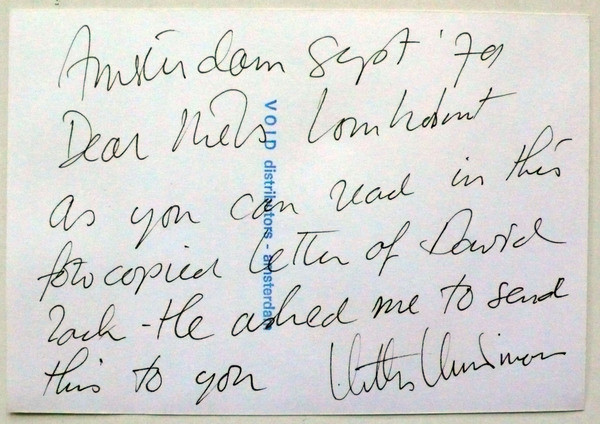 Amsterdam Sept '79
Dear Niels Lomholt
as you can read in this
fotocopied letter of David
Zack - He asked me to send
this to you
VOID distributors - amsterdam